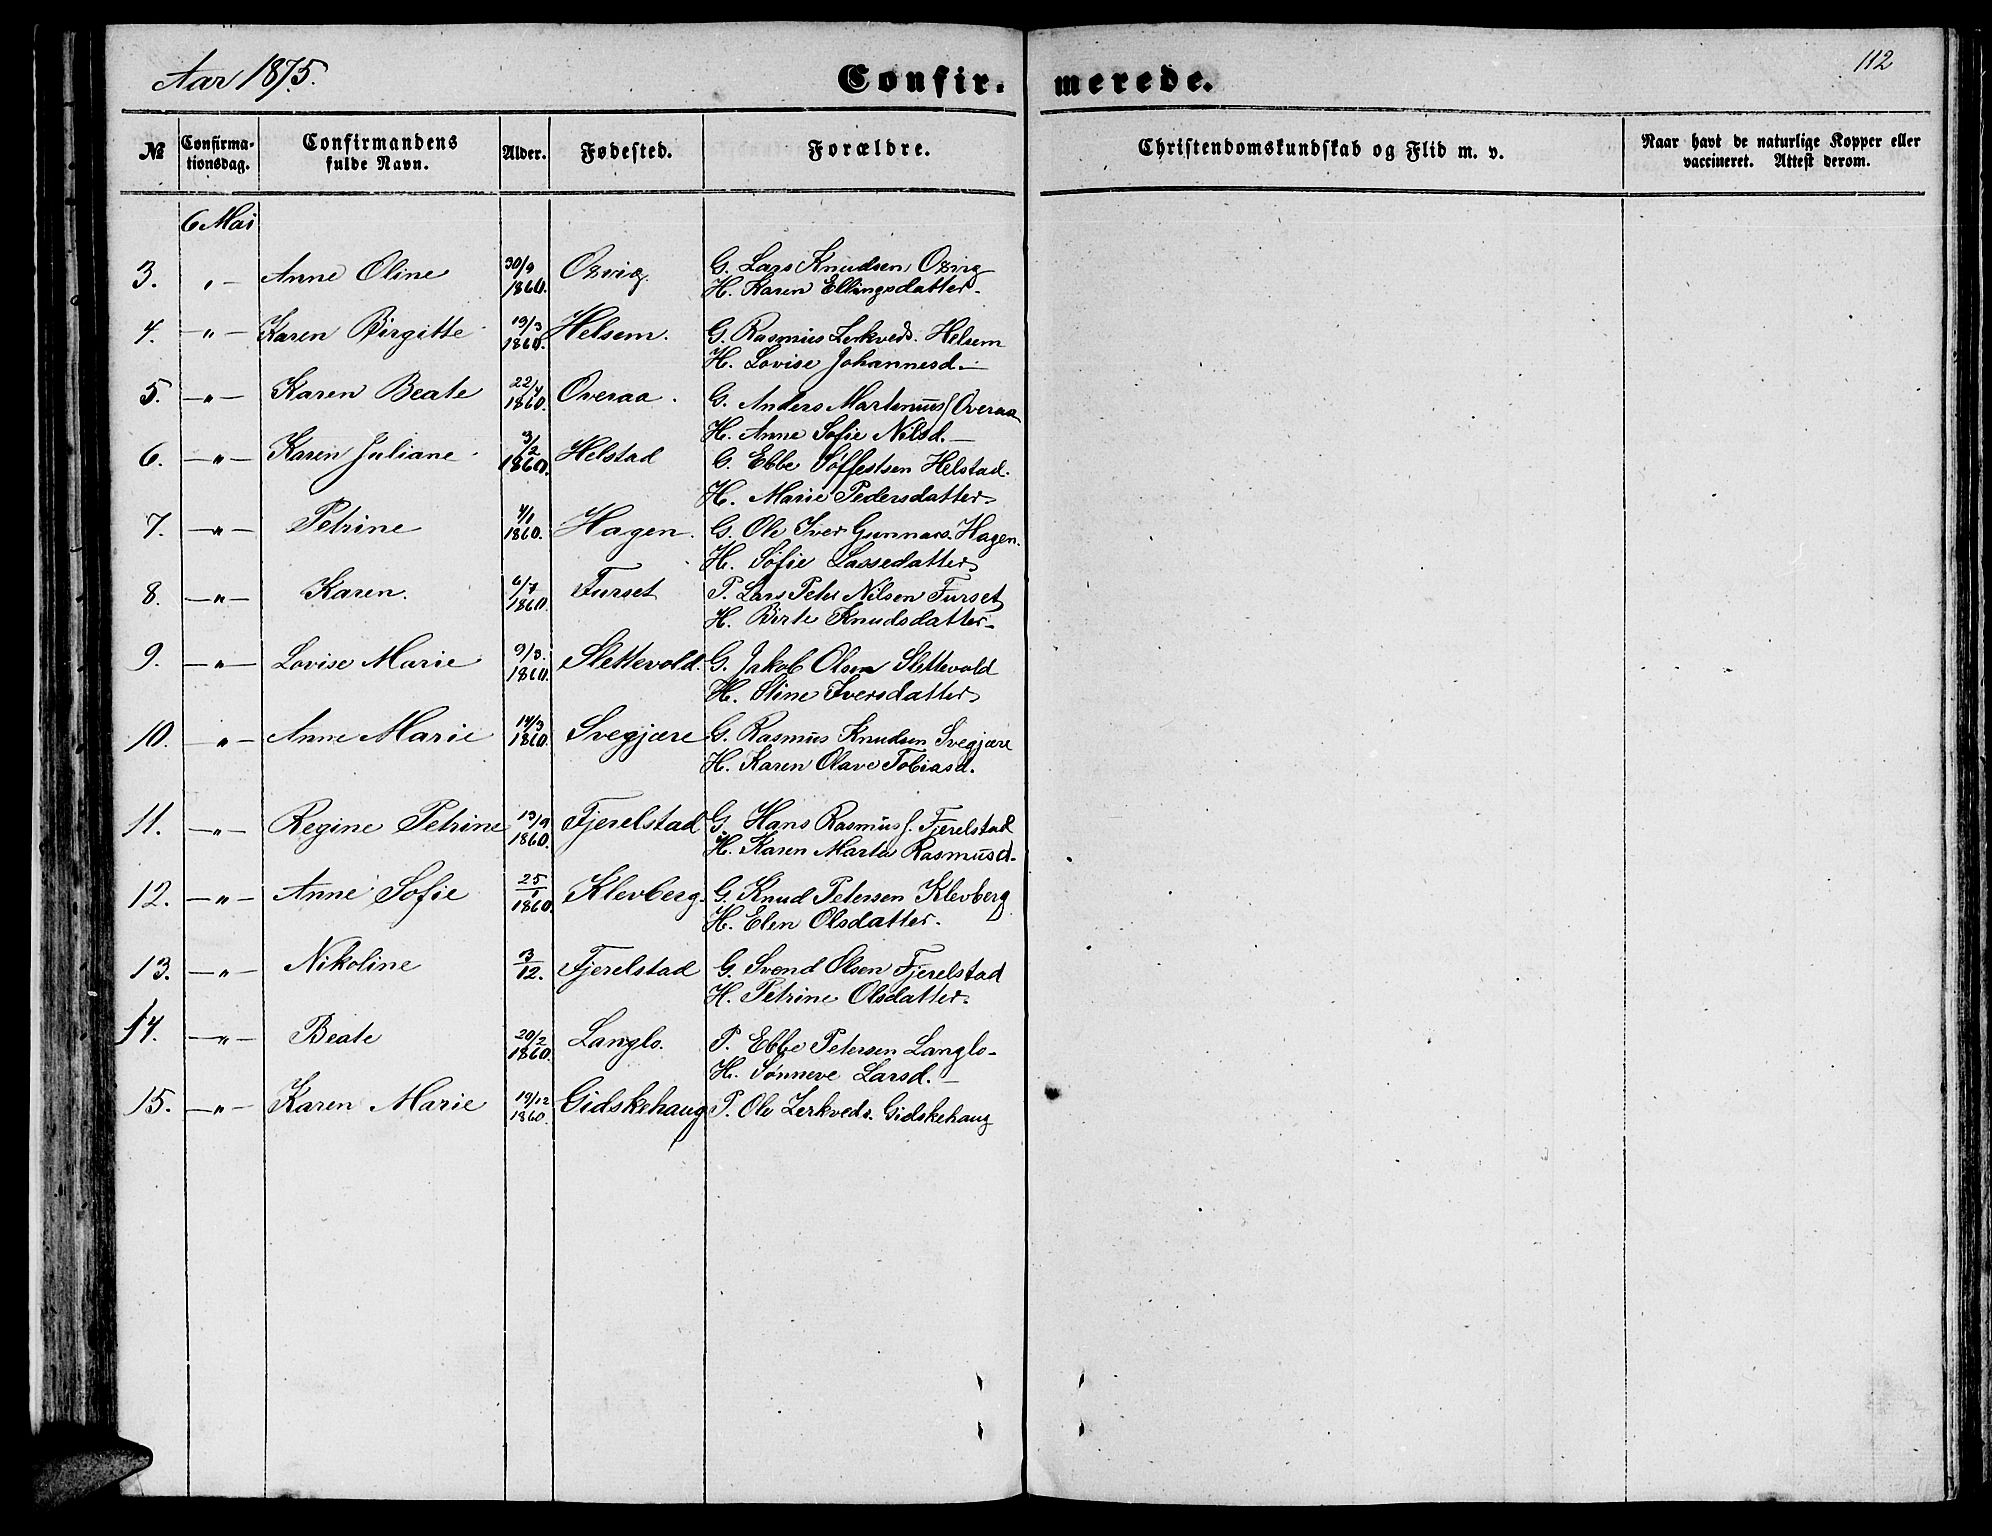 Aar 1875.
Confir. merede.
112
№
Confirma-
tionsdag.
Confirmandens
fulde Navn.
Alder.
Fødested.
Forældre.
Christendomskundskab og Flid m. v.
Naar havt de naturlige Kopper eller
vaccineret. Attest derom.
6 Mai
3. „ Anne Oline 30/9 1860. Osvig. G. Lars Knudsen Osvig
H. Karen Ellingsdatter.
4. „ Karen Birgitte 19/3 1860. Helsem. G. Rasmus Zerkveds. Helsem
H. Lovise Johannesd.
5. „ Karen Beate 22/4 1860. Overaa. G. Anders Martinus Overaa
H. Anne Sofie Nilsd.
6. „ Karen Juliane 3/2 1860. Helstad G. Ebbe Søffestsen Helstad.
H. Marie Pedersdatter
7. „ Petrine 4/1 1860. Hagen. G. Ole Iver Gunnars. Hagen.
H. Søfie Lassedatter
8. „ Karen. 6/7 1860. Furset P. Lars Peter Nilsen Furset
H. Birte Knudsdatter
9. „ Lovise Marie 9/3. 1860. Slettevold. G. Jakob Olsen Slettevold
H. Stine Iversdatter
10. „ Anne Marie 14/3 1860. Svegjære G. Rasmus Knudsen Svegjære
H. Karen Olave Tobiasd.
11. „ Regine Petrine 19/9 1860. Fjerelstad G. Hans Rasmus s. Fjerelstad
H. Karen Marte Rasmusd.
12. „ Anne Sofie 25/1 1860. Klevberg. G. Knud Petersen Klevberg
H. Elen Olsdatter.
13. „ Nikoline 3/12. Fjerelstad G. Svend Olsen Fjerelstad
H. Petrine Olsdatter.
14. „ Beate 20/2 1860. Langlo. P. Ebbe Petersen Langlo
H. Sønneve Larsd.
15. „ Karen Marie 19/12 1860. Gidskehaug P. Ole Zerkveds. Gidskehaug